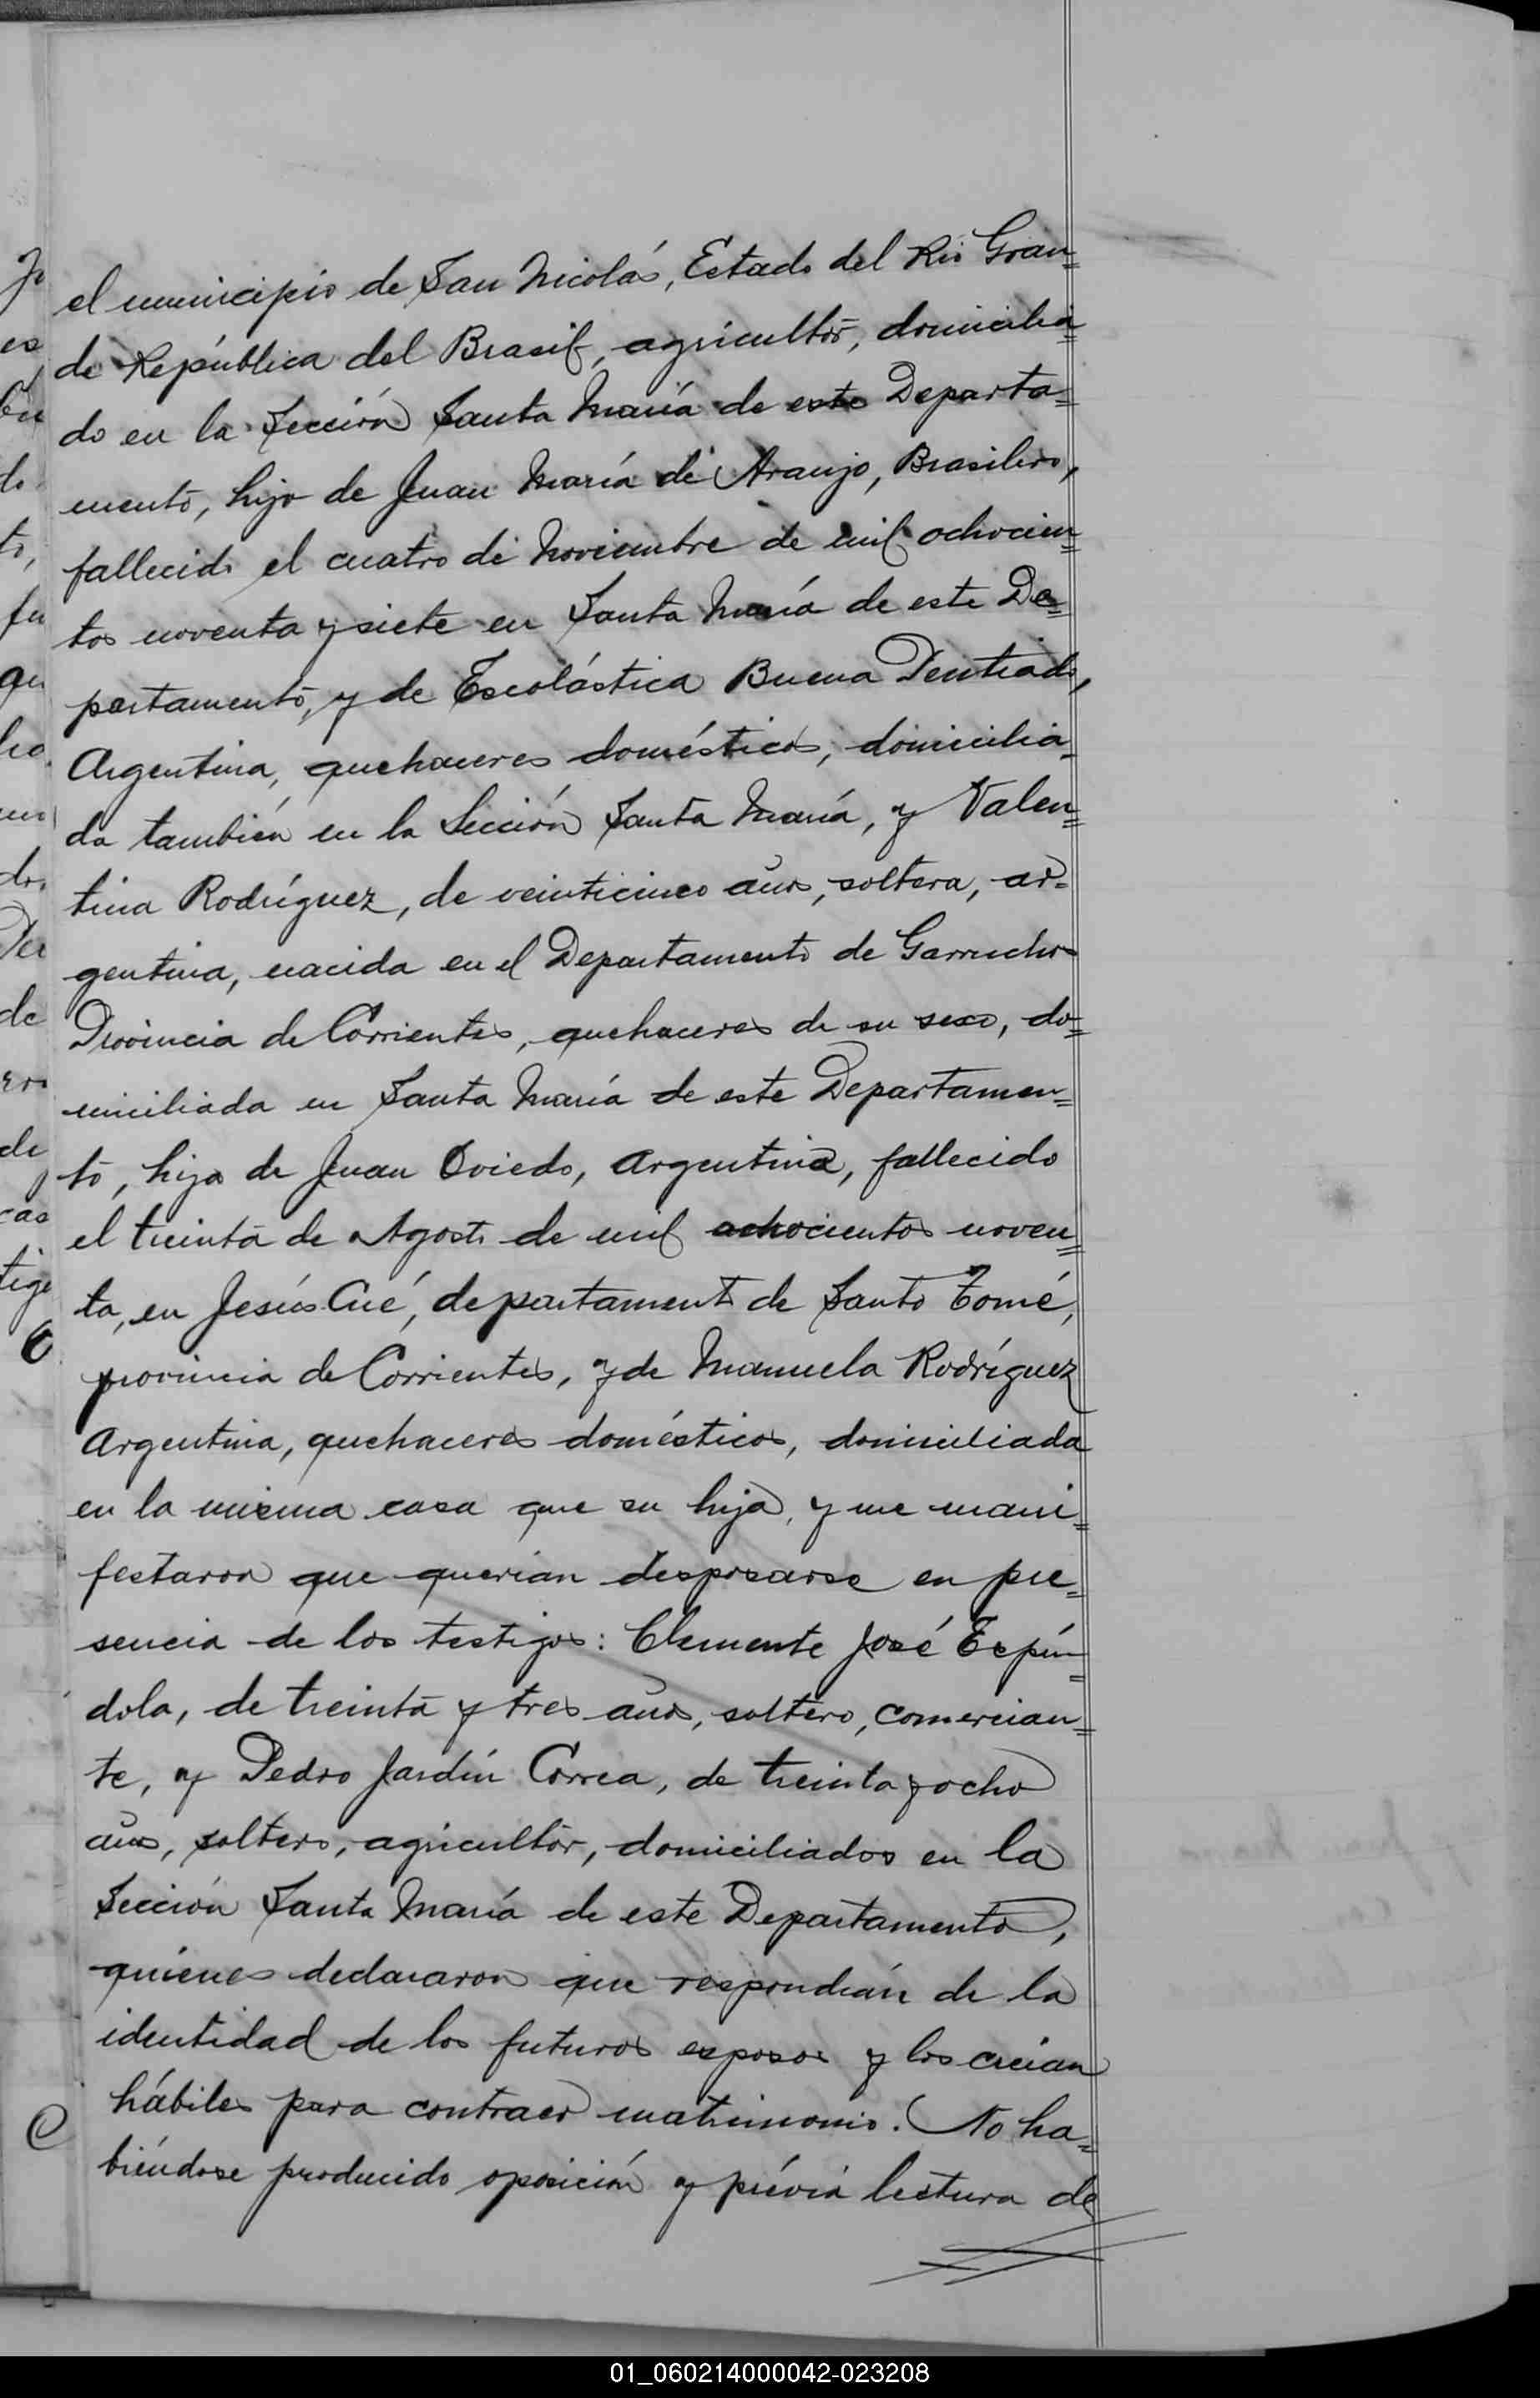 el municipio de San Nicolás, Estado del Rio Gran=
de República del Brasil, agricultor, domicilia=
do en la Sección Santa María de este Departa=
mento, hijo de Juan María de Araujo, Brasilero,
fallecido el cuatro de Noviembre de mil ochocien=
tos noventa y siete en Santa María de este De=
partamento, y de Escolástica Buena
Argentina, quehaceres domésticos, domicilia=
da también en la Sección Santa María, y Valen=
tina Rodríguez, de veinticinco años, soltera, ar=
gentina, nacida en el Departamento de Garruchos
Provincia de Corrientes, quehaceres de su sexo, do=
miciliada en Santa María de este Departamen=
to, hija de Juan Oviedo, Argentino, fallecido
el treinta de Agosto de mil ochocientos noven=
ta, en Jesús Cué, departamento de Santo Tomé,
provincia de Corrientes, y de Manuela Rodríguez
Argentina, quehaceres domésticos, domiciliada
en la misma casa que su hija, y me mani=
festaron que querian desposarse en pre=
sencia de los testigos: Clemente José Espín=
dola, de treinta y tres años, soltero, comercian=
te, y Pedro Jardín Correa, de treinta y ocho
años, soltero, agricultor, domiciliados en la
Sección Santa María de este Departamento,
quiénes declararon que respondían de la
identidad de los futuros esposos y los creian
hábiles para contraer matrimonio. No ha=
biéndose producido oposición y prévia lectura de
01_060214000042-023208